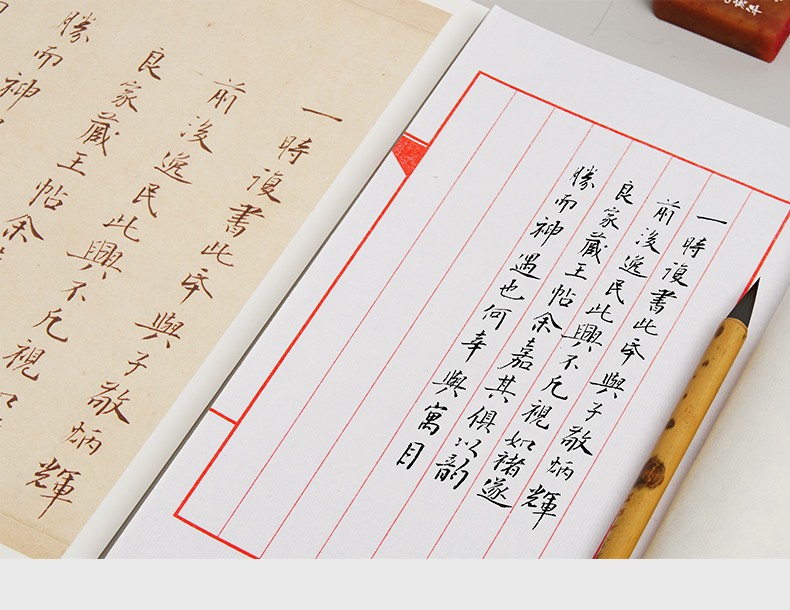 一時復書此本與子敬炳輝
前後逸民此興不凡視如褚遂
良家藏王帖余嘉其俱以韵
勝而神遇也何幸與寓目
一時復書此本與子敬炳輝
前後逸民此興不凡視如
良家藏王帖余
勝而神